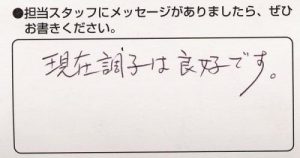 ●担当スタッフにメッセージがありましたら、ぜひ
お書きください。
現在調子は良好です。